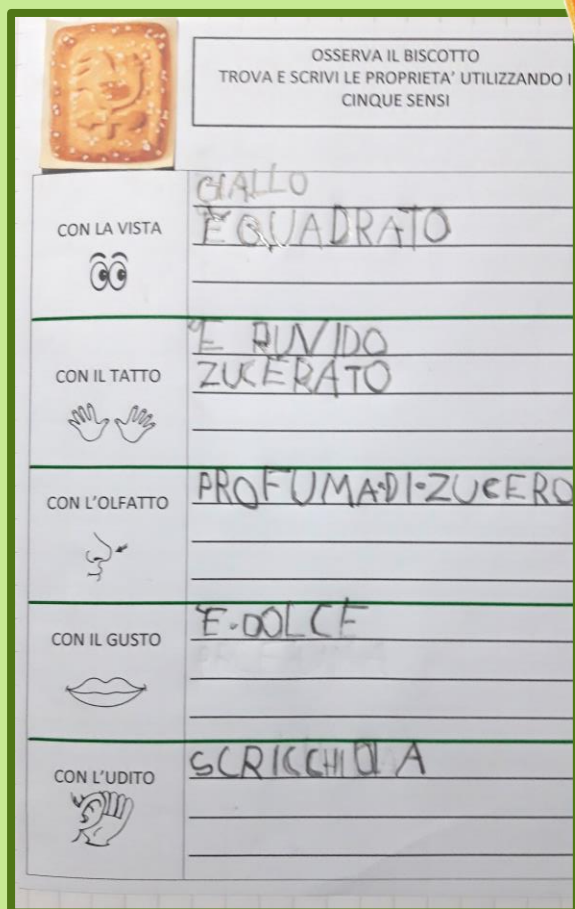 OSSERVA IL BISCOTTO
TROVA E SCRIVI LE PROPRIETA' UTILIZZANDO I
CINQUE SENSI
CON LA VISTA
GIALLO
E QUADRATO
CON IL TATTO
E RUVIDO
ZUCERATO
CON L'OLFATTO
PROFUMA•DI•ZUCERO
CON IL GUSTO
E•DOLCE
CON L'UDITO
SCRICCHIOLA